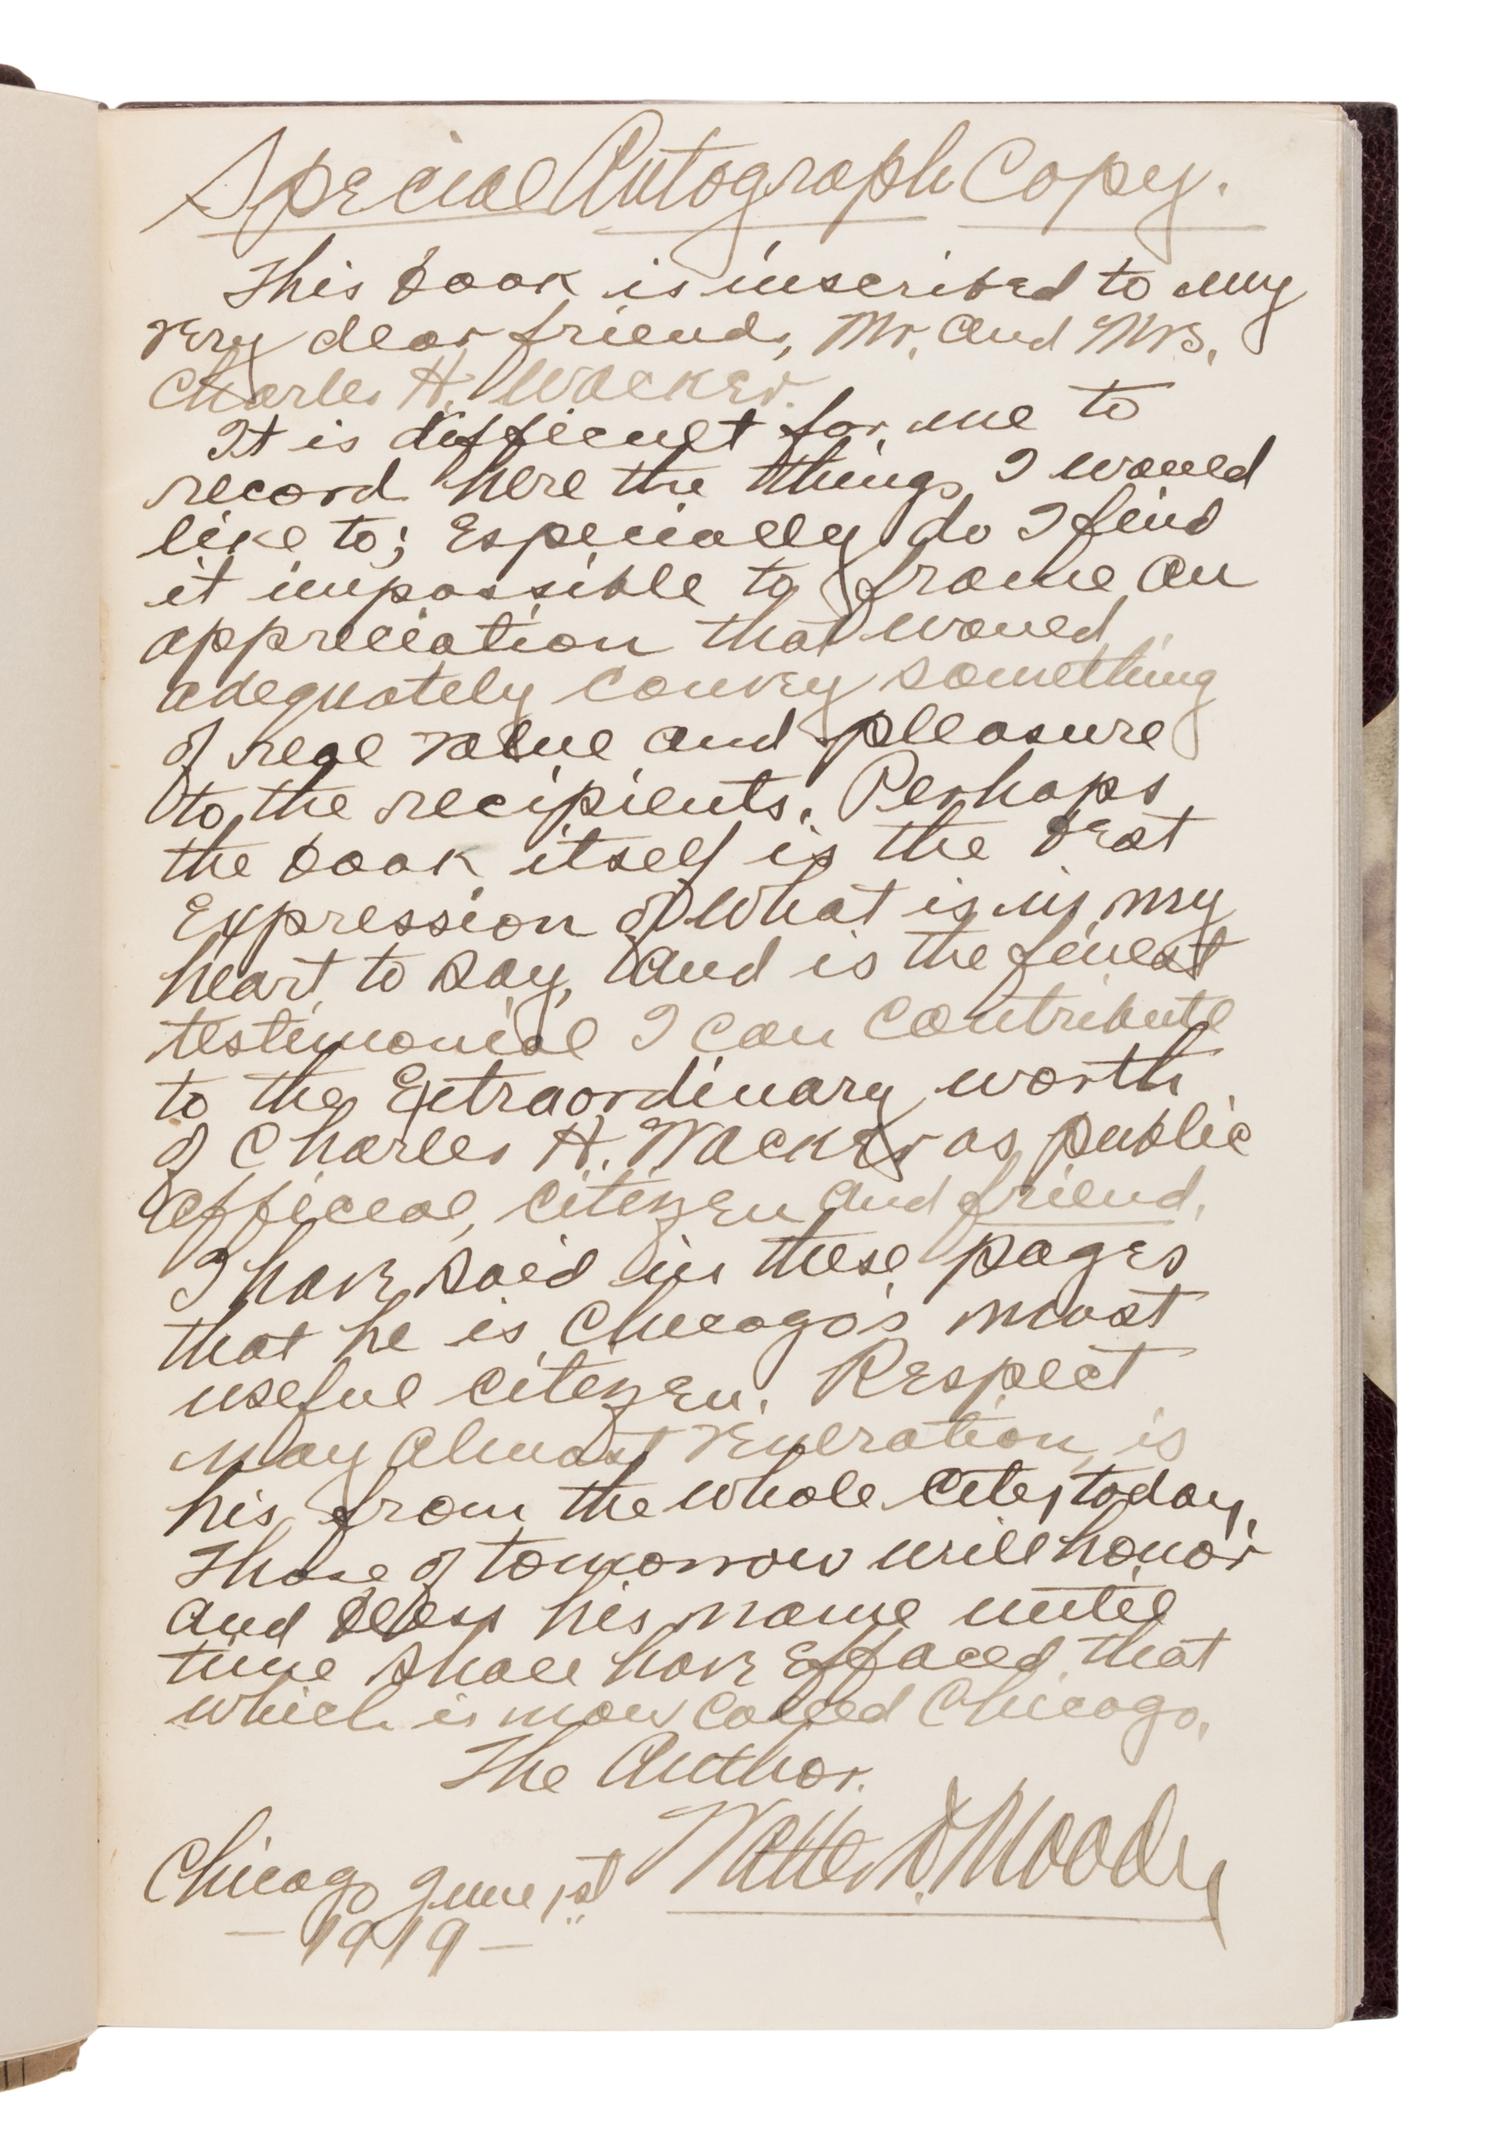 Special Autograph Copy.
This book is inscribed to my
very dear friends, Mr. and Mrs.
Charles H. Wacker.
It is difficult for me to
record here the things I would
like to; Especially do I find
it impossible to frame an
appreciation that would
adequately convey something
of real value and pleasure
to the recipients. Perhaps
the book itself is the best
Expression of what is in my
heart to say, and is the finest
testimonial I can contribute
to the Extraordinary worth
of Charles H. Wacker as public
official, citizen and friend.
I have said in these pages
that he is Chicago's most
useful citizen. Respect
nay almost veneration, is
his from the whole city, today.
Those of tomorrow will honor
and bless his name until
time shall have Effaced that
which is now called Chicago.
The Author.
Walter D Moody
Chicago June 1st
- 1919 -